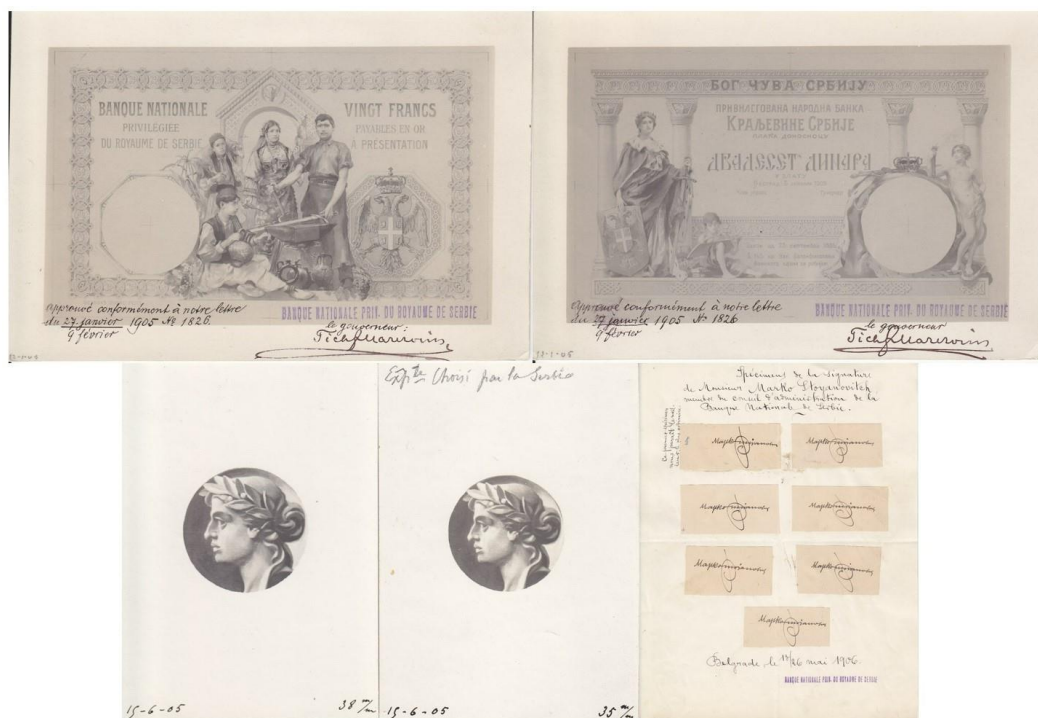 BANQUE NATIONALE
PRIVILÉGIÉE
DU ROYAUME DE SERBIE
VINGT FRANCS
PAYABLES EN OR
A PRÉSENTATION
approuvé conformément à notre lettre
du 27 janvier 1905 № 1826.
9 février
BANQUE NATIONALE PRIV. DU ROYAUME DE SERBIE
Le gouverneur:
БОГ ЧУВА СРБИЈУ
ПРИВИЛЕГОВАНА НАРОДНА БАНКА
КРАЉЕВИНЕ СРБИЈЕ
ДВАДЕСЕТ ДИНАРА
У ЗЛАТУ
approuvé conformément à notre lettre
du 27 janvier 1905 № 1826
9 février
BANQUE NATIONALE PRIV. DU ROYAUME DE SERBIE
Le gouverneur
15-6-05
38 m/m
Choisi par la Serbie
15-6-05
35 m/m
Spécimens de la signature
de Monsieur Marko Stoyanovitch
membre du conseil d'administration de la
Banque Nationale de Serbie.
Марко Стојановић
Марко Стојановић
Марко Стојановић
Марко Стојановић
Марко Стојановић
Марко Стојановић
Марко Стојановић
Belgrade le 13/26 mai 1906.
BANQUE NATIONALE PRIV. DU ROYAUME DE SERBIE